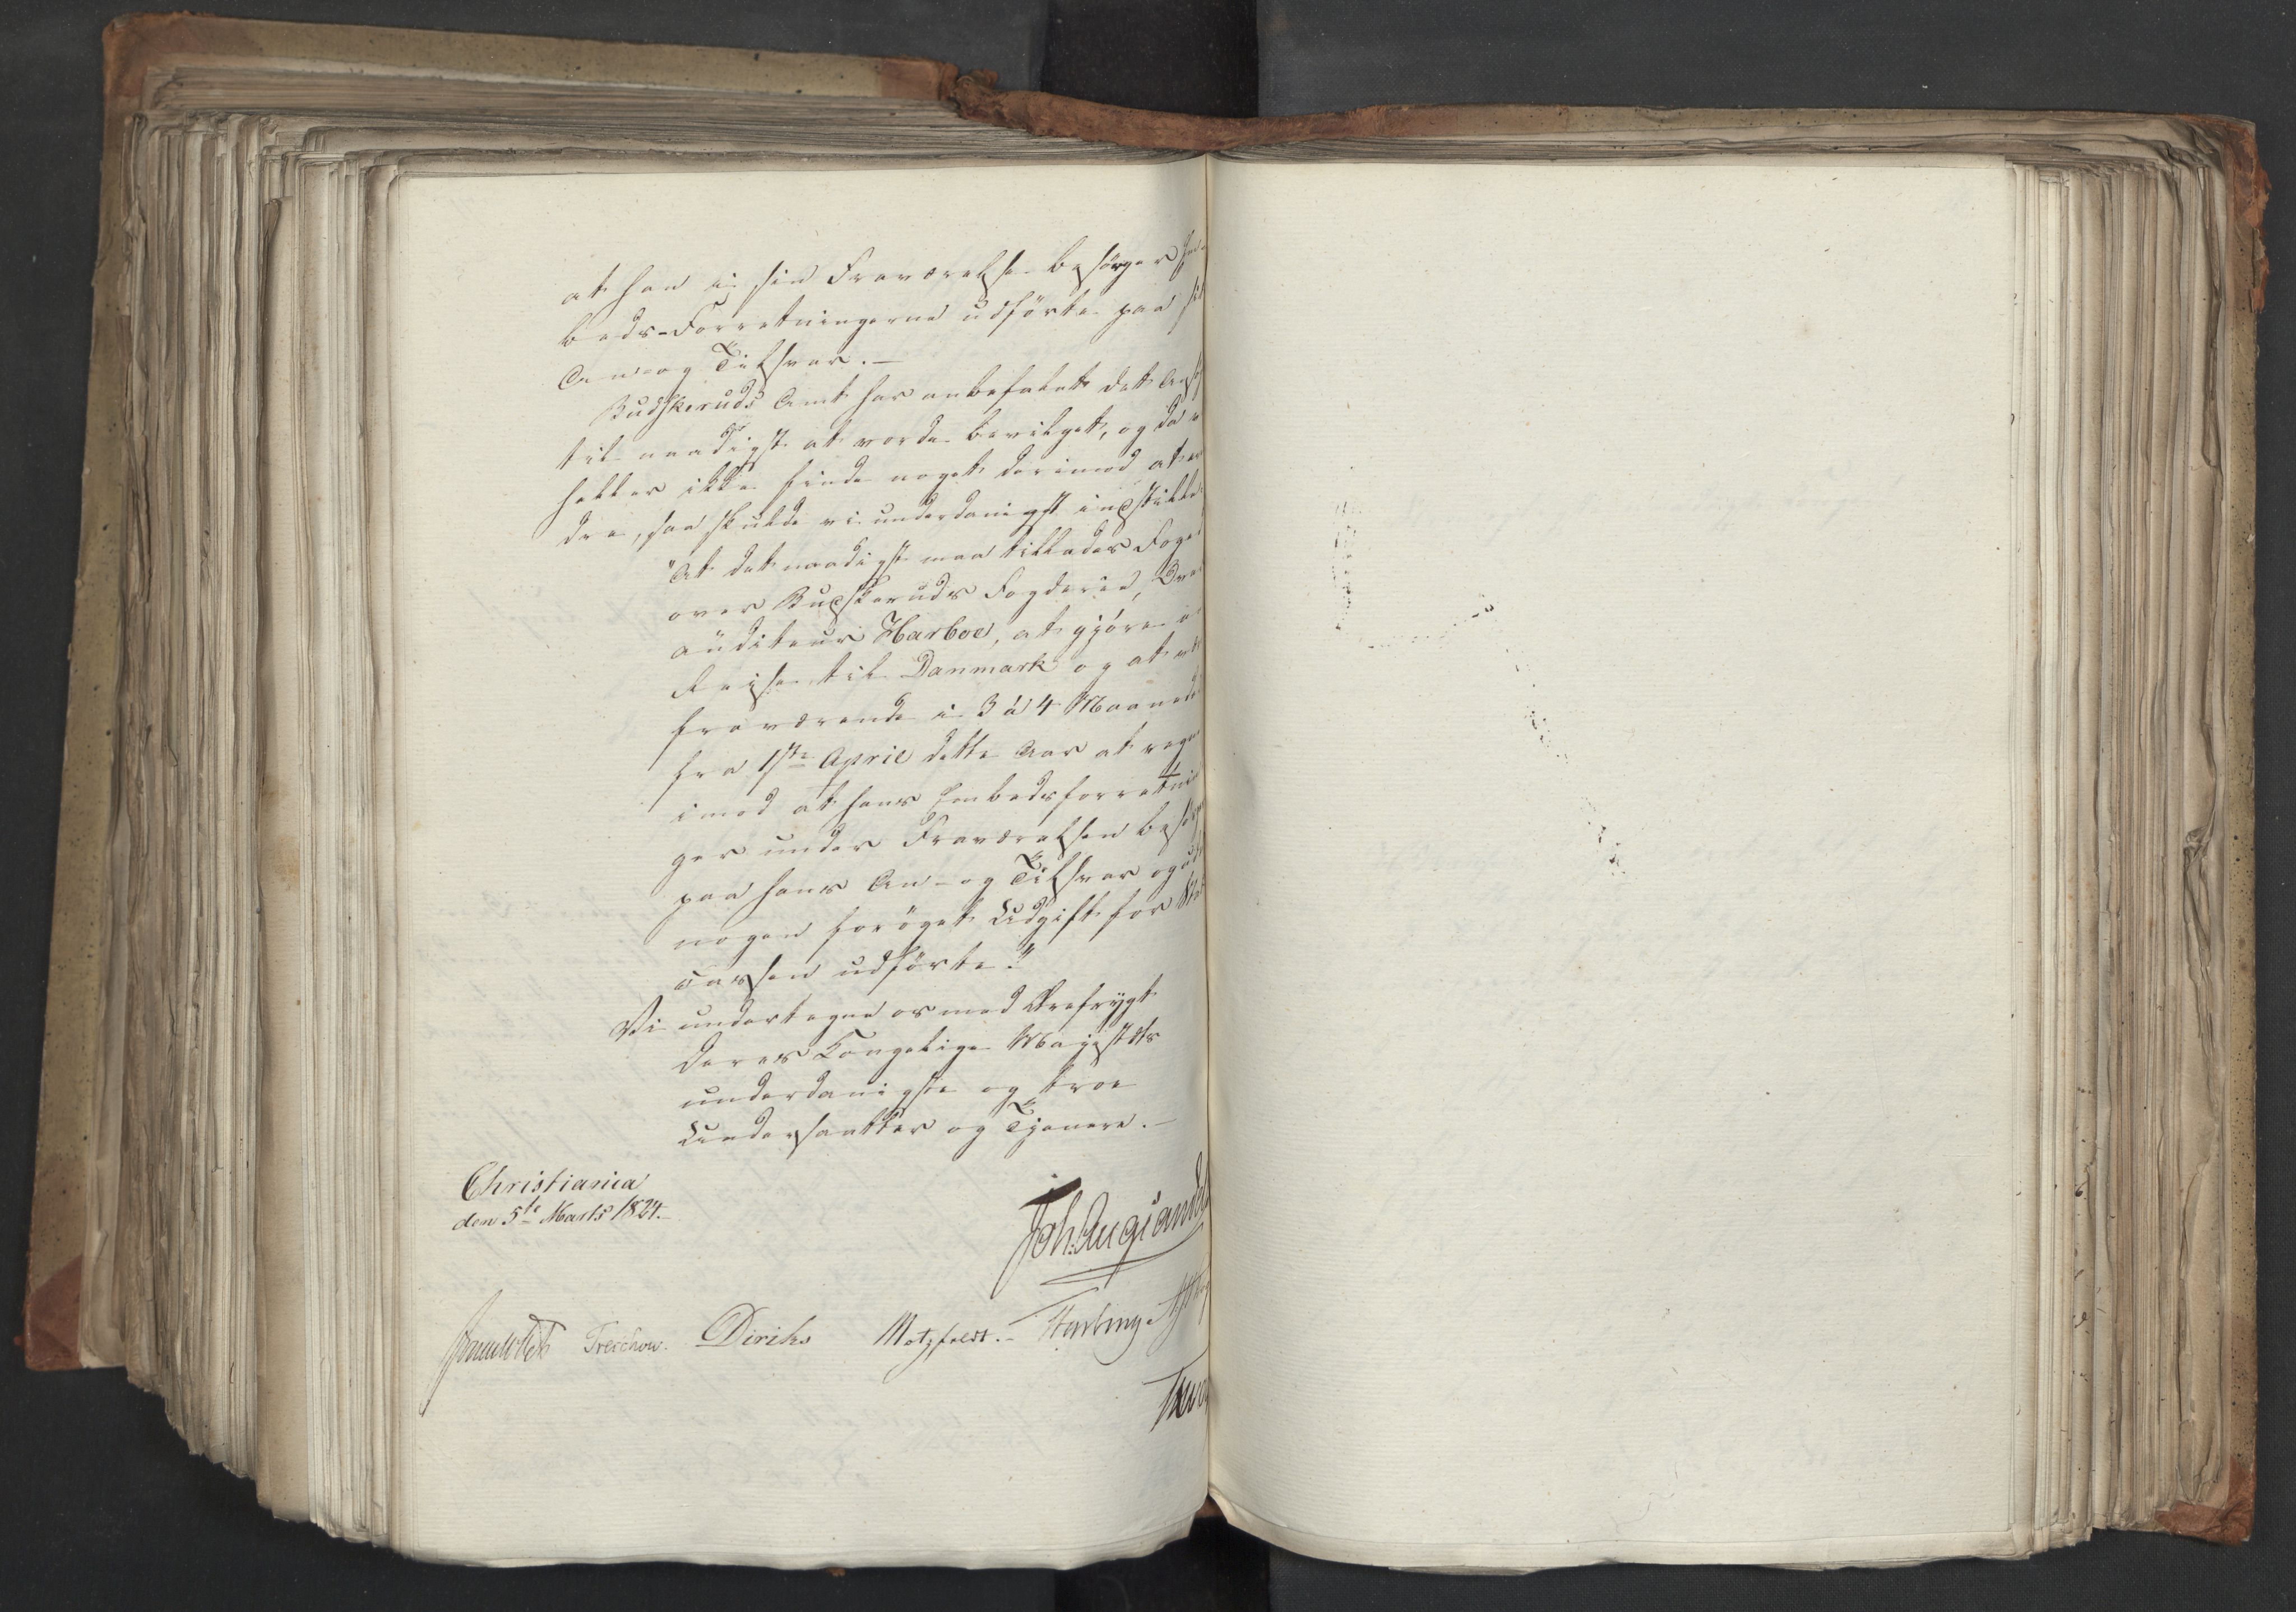 at han i sin Fraværelse besørger Em-
beds-Forretningerne udførte paa sit
An- og Tilsvar. —
Budskeruds Amt har anbefalet dette Ansø
til naadigst at vorde bevilget, og da v
heller ikke finde noget derimod at er
dre, saa skulde vi underdanigst indstille
"At det naadigst maa tillades Foge
over Budskeruds Fogderie, Over
auditeur Harboe, at gjøre e
Reise til Danmark og at væ
fraværende i 3 á 4 Maaneder
fra 1ste April dette Aar at regn
imod at hans Embedsforretnin
ger under Fraværelsen besørges
paa hans An- og Tilsvar og ud
nogen forøget Udgift for Stats
cassen udførte."
Vi undertegne os med Ærefrygt
Deres Kongelige Majestæts
underdanigste og troe
Undersaatter og Tjenere. —
Christiania
den 5te Marts 1824.
Joh: Aug: Sandels
Treschow. Diriks Motzfeldt.